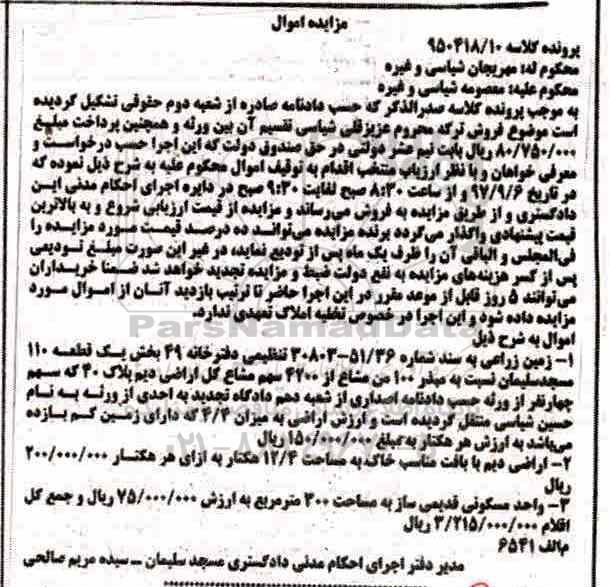 مزایده اموال
پرونده کلاسه ۹۵۰۴۱۸/۱۰
محکوم له: مهریجان شیاسی و غیره
محکوم علیه: معصومه شیاسی و غیره
به موجب پرونده کلاسه صدرالذکر که حسب دادنامه صادره از شعبه دوم حقوقی تشکیل گردیده
است موضوع فروش ترکه مرحوم عزیزقلی شیاسی تقسیم آن بین ورثه و همچنین پرداخت مبلغ
۸۰/۷۵۰/۰۰۰ ریال بابت نیم عشر دولتی در حق صندوق دولت که این اجرا حسب درخواست و
معرفی خواهان و با نظر ارزیاب منتخب اقدام به توقیف اموال محکوم علیه به شرح ذیل نموده که
در تاریخ ۹۷/۹/۶ و از ساعت ۸:۳۰ صبح لغایت ۹:۳۰ صبح در دایره اجرای احکام مدنی این
دادگستری و از طریق مزایده به فروش می‌رساند و مزایده از قیمت ارزیابی شروع و به بالاترین
قیمت پیشنهادی واگذار می‌گردد برنده مزایده می‌تواند ده درصد قیمت مورد مزایده را
فی‌المجلس و الباقی آن را ظرف یک ماه پس از تودیع نماید، در غیر این صورت مبلغ تودیعی
پس از کسر هزینه‌های مزایده به نفع دولت ضبط و مزایده تجدید خواهد شد ضمنا خریداران
می‌توانند ۵ روز قابل از موعد مقرر در این اجرا حاضر تا ترتیب بازدید آنان از اموال مورد
مزایده داده شود و این اجرا در خصوص تخلیه املاک تعهدی ندارد.
اموال به شرح ذیل
۱- زمین زراعی به سند شماره ۵۱/۳۶-۳۰۸۰۳ تنظیمی دفترخانه ۴۹ بخش یک قطعه ۱۱۰
مسجدسلیمان نسبت به مبذر ۱۰۰ من مشاع از ۴۲۰۰ سهم مشاع کل اراضی دیم پلاک ۴۰ که سهم
چهارنفر از ورثه حسب دادنامه اصداری از شعبه دهم دادگاه تجدید به احدی از ورثه به نام
حسین شیاسی منتقل گردیده است و ارزش اراضی به میزان ۴/۴ که دارای زمین کم بازده
می‌باشد به ارزش هر هکتار به مبلغ ۱۵۰/۰۰۰/۰۰۰ ریال
۲- اراضی دیم با بافت مناسب خاک به مساحت ۱۲/۴ هکتار به ازای هر هکتار ۲۰۰/۰۰۰/۰۰۰
ریال
۳- واحد مسکونی قدیمی ساز به مساحت ۳۰۰ مترمربع به ارزش ۷۵/۰۰۰/۰۰۰ ریال و جمع کل
اقلام ۳/۲۱۵/۰۰۰/۰۰۰ ریال
م‌الف ۶۵۴۱
مدیر دفتر اجرای احکام مدنی دادگستری مسجد سلیمان – سیده مریم صالحی
ParsNamadData